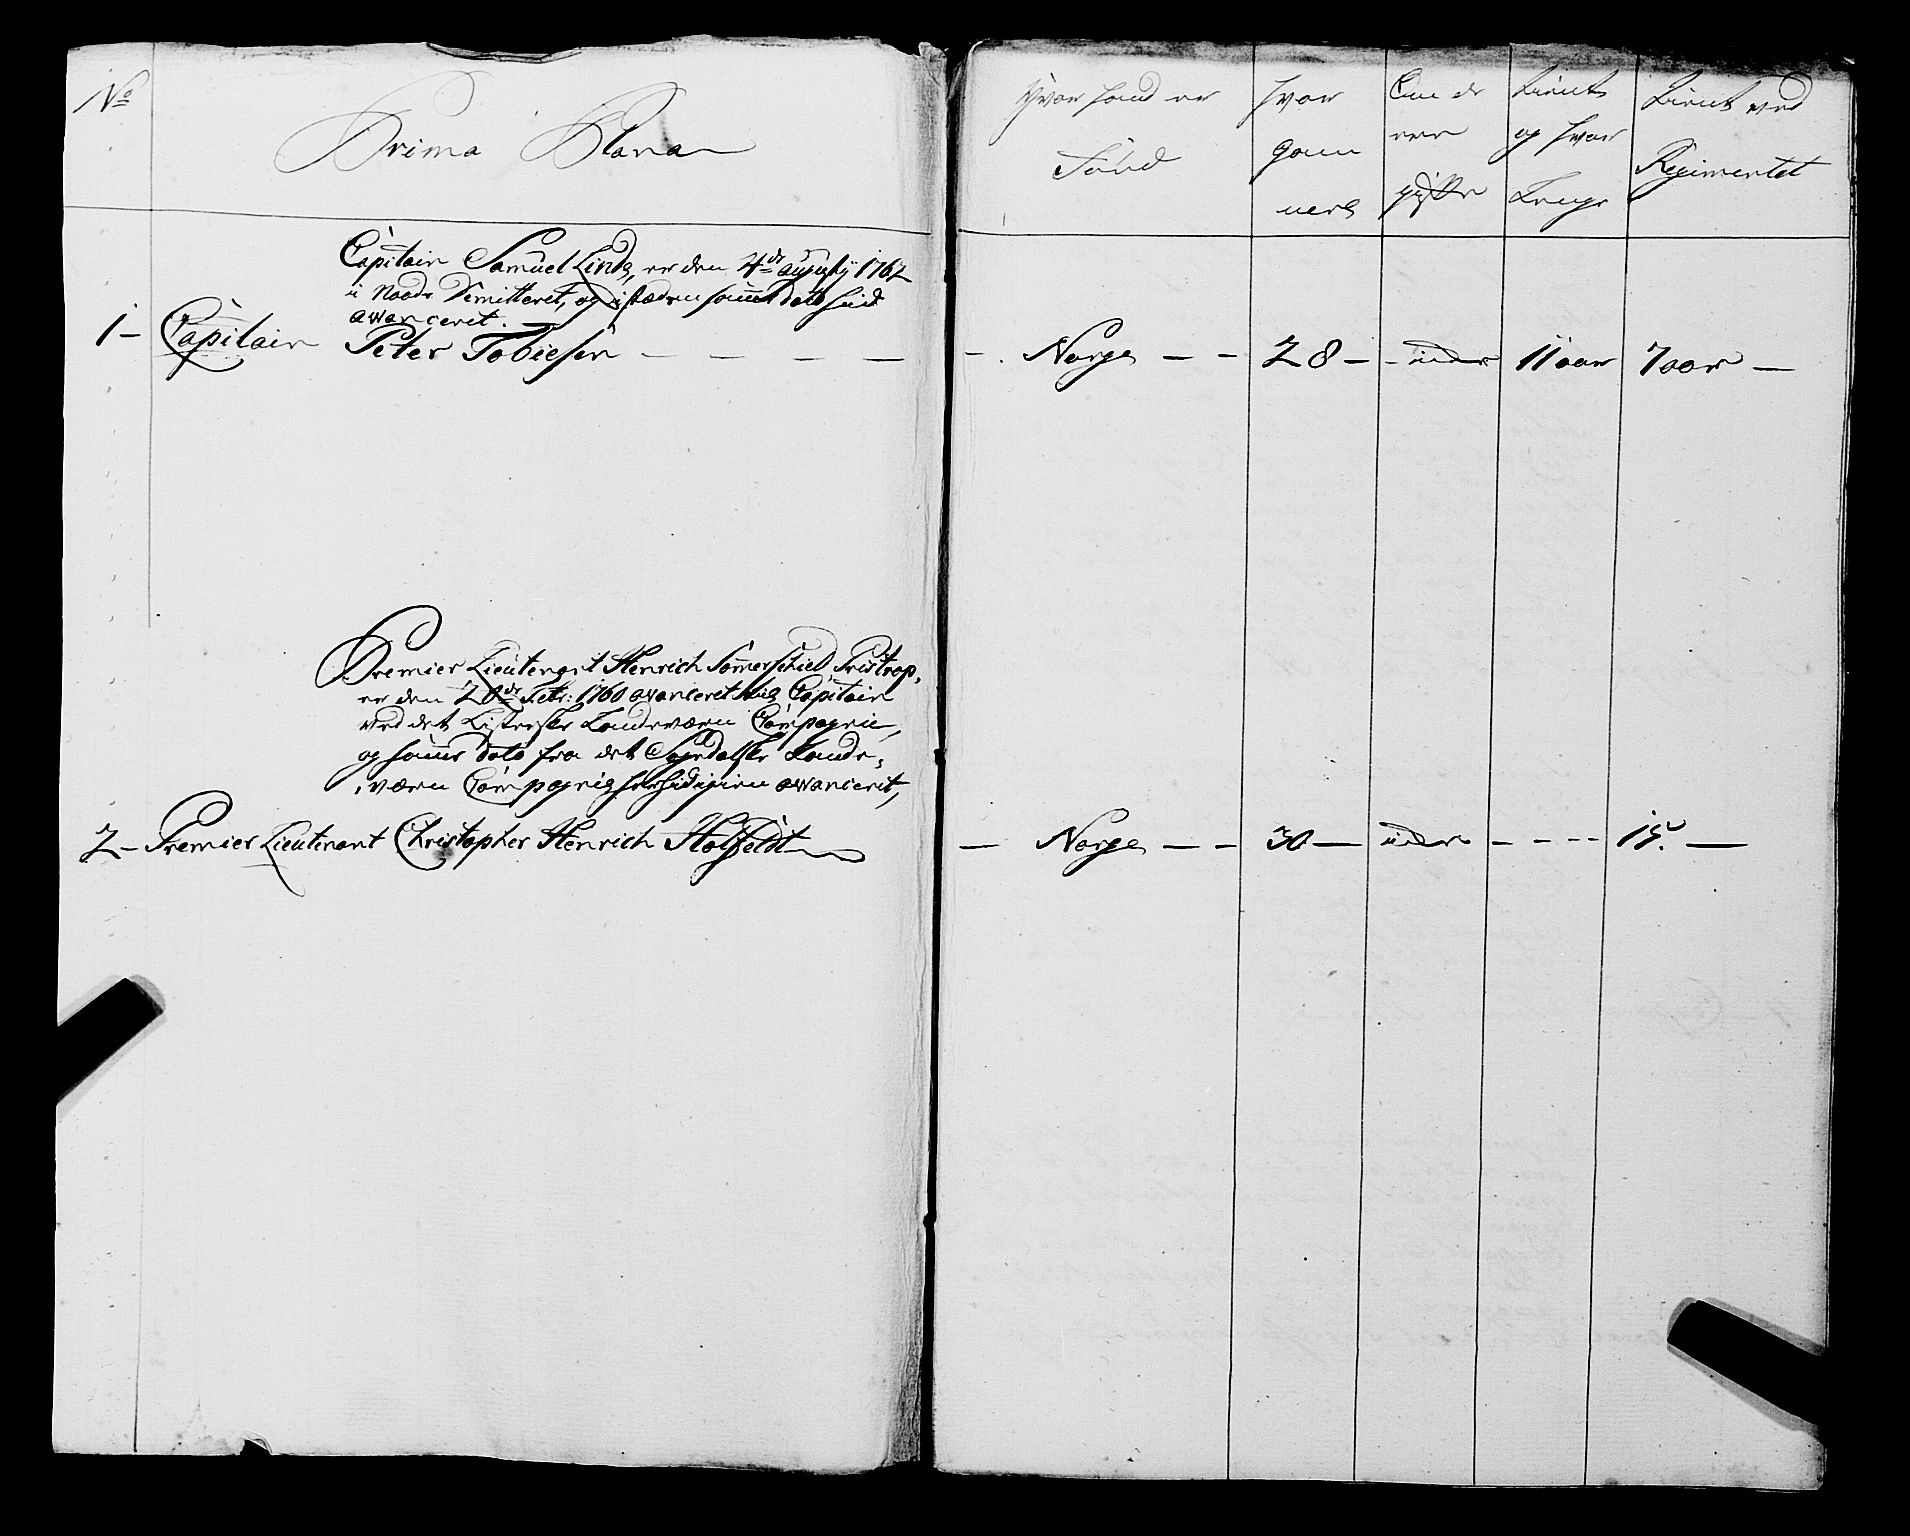 No
Prima Plana
Hvor hand er
Fönd
hvor
gam
mel
Om de
ere
gifte
tient
og hvor
Lenge
tient ved
Regimentet
Capitain Samuel Linde, er den 4de Augusty 1762
i Naade Dimitteret, og i stæden samme dato hid
avanceret.
1 - Capitain Peter Tobiesen - - - -
- Norge - - 28 - - - 11 aar 7 aar -
Premier Lieutenant Henrich Sommerschield Tristrop,
er den 20de Febr: 1760 avanceret til Capitain
ved det Listerske Landeværn Compagnie,
og samme dato fra det Sogndalske Lande-
værn Compagnie avanceret,
2 - Premier Lieutenant Christopher Henrich Holfeldt
- Norge - - 30 - - - - - 15. -